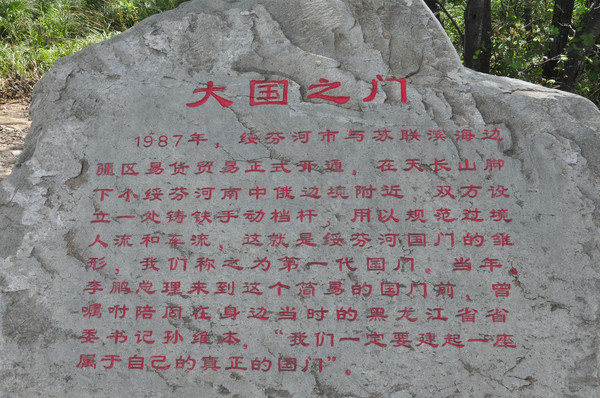 大国之门
1987年，绥芬河市与苏联滨海边
疆区易货贸易正式开通，在天长山脚
下小绥芬河南中俄边境附近，双方设
立一处铸铁手动档杆，用以规范过境
人流和车流，这就是绥芬河国门的雏
形，我们称之为第一代国门。当年，
李鹏总理来到这个简易的国门前，曾
嘱咐陪同在身边当时的黑龙江省省
委书记孙维本，“我们一定要建起一座
属于自己的真正的国门”。